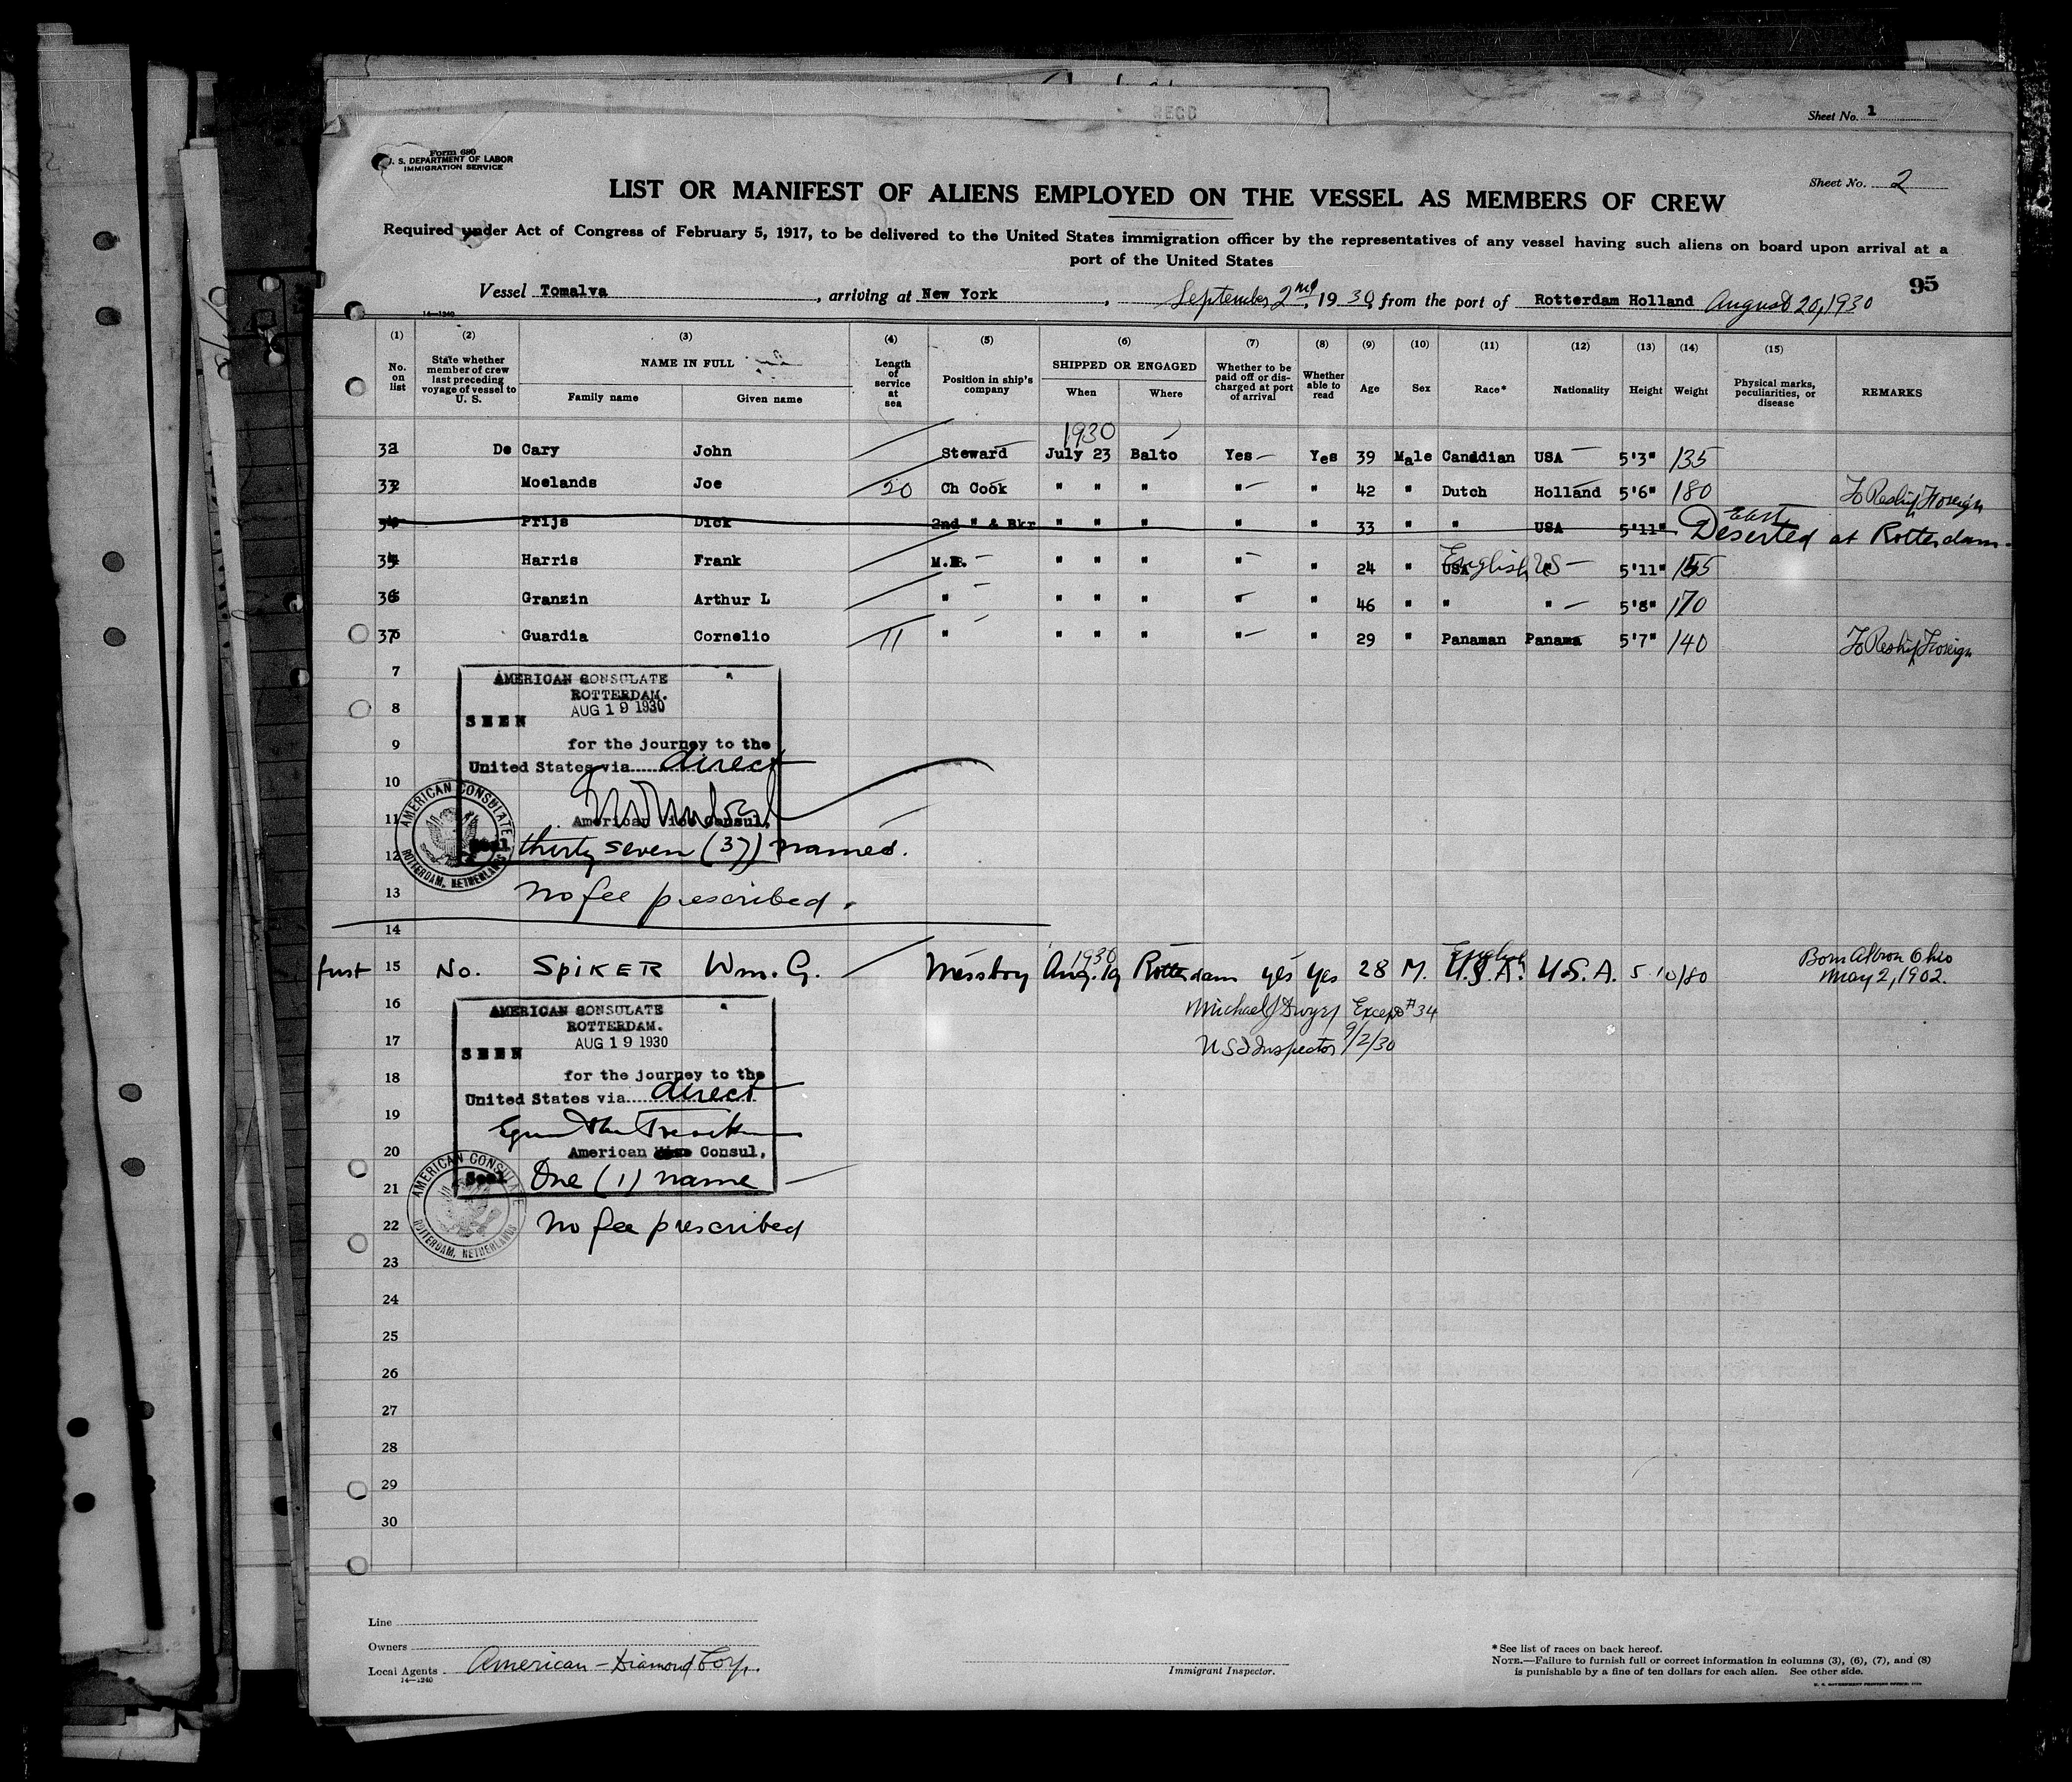 RECD
Sheet No. 1
Form 680
U. S. DEPARTMENT OF LABOR
IMMIGRATION SERVICE
Sheet No. 2
LIST OR MANIFEST OF ALIENS EMPLOYED ON THE VESSEL AS MEMBERS OF CREW
Required under Act of Congress of February 5, 1917, to be delivered to the United States immigration officer by the representatives of any vessel having such aliens on board upon arrival at a
port of the United States
95
Vessel Tomalva, arriving at New York, September 2nd, 1930, from the port of Rotterdam Holland August 20, 1930
14—1240
(1) (2) (3) (4) (5) (6) (7) (8) (9) (10) (11) (12) (13) (14) (15)
No. on list
State whether member of crew last preceding voyage of vessel to U. S.
NAME IN FULL
Family name
Given name
Length of service at sea
Position in ship's company
SHIPPED OR ENGAGED
When
Where
Whether to be paid off or discharged at port of arrival
Whether able to read
Age
Sex
Race*
Nationality
Height
Weight
Physical marks, peculiarities, or disease
REMARKS
1930
32 De Cary John Steward July 23 Balto Yes Yes 39 Male Canadian USA 5'3" 135
33 Moelands Joe 20 Ch Cook " " " " " 42 " Dutch Holland 5'6" 180 To Reship Foreign
34 Prijs Dick 2nd " & Bkr " " " " " 33 " " USA 5'11" Deserted at Rotterdam
35 Harris Frank M.B. " " " " " 24 " USA English US 5'11" 155
36 Granzin Arthur L " " " " " " 46 " " " 5'8" 170
37 Guardia Cornelio 11 " " " " " " 29 " Panaman Panama 5'7" 140 To Reship Foreign
7
AMERICAN CONSULATE
ROTTERDAM.
8
AUG 19 1930
SEEN
9
for the journey to the
United States via direct
10
11
American Vice Consul,
12
Seal thirty seven (37) names.
AMERICAN CONSULATE
ROTTERDAM, NETHERLANDS
13
No fee prescribed.
14
1930
English
first 15 No. SPIKER Wm. G. Messboy Aug. 19 Rotterdam yes yes 28 M. U.S.A. U.S.A. 5 10 180 Born Akron Ohio
May 2, 1902.
16
Michael J Dwyer Except #34
AMERICAN CONSULATE
ROTTERDAM.
17
AUG 19 1930
U S I Inspector 9/2/30
SEEN
18
for the journey to the
United States via direct
19
20
American Consul,
21
Seal One (1) name
AMERICAN CONSULATE
ROTTERDAM, NETHERLANDS
22
No fee prescribed
23
24
25
26
27
28
29
30
Line
Owners
Local Agents American-Diamond Corp.
14—1240
Immigrant Inspector.
*See list of races on back hereof.
NOTE.—Failure to furnish full or correct information in columns (3), (6), (7), and (8)
is punishable by a fine of ten dollars for each alien. See other side.